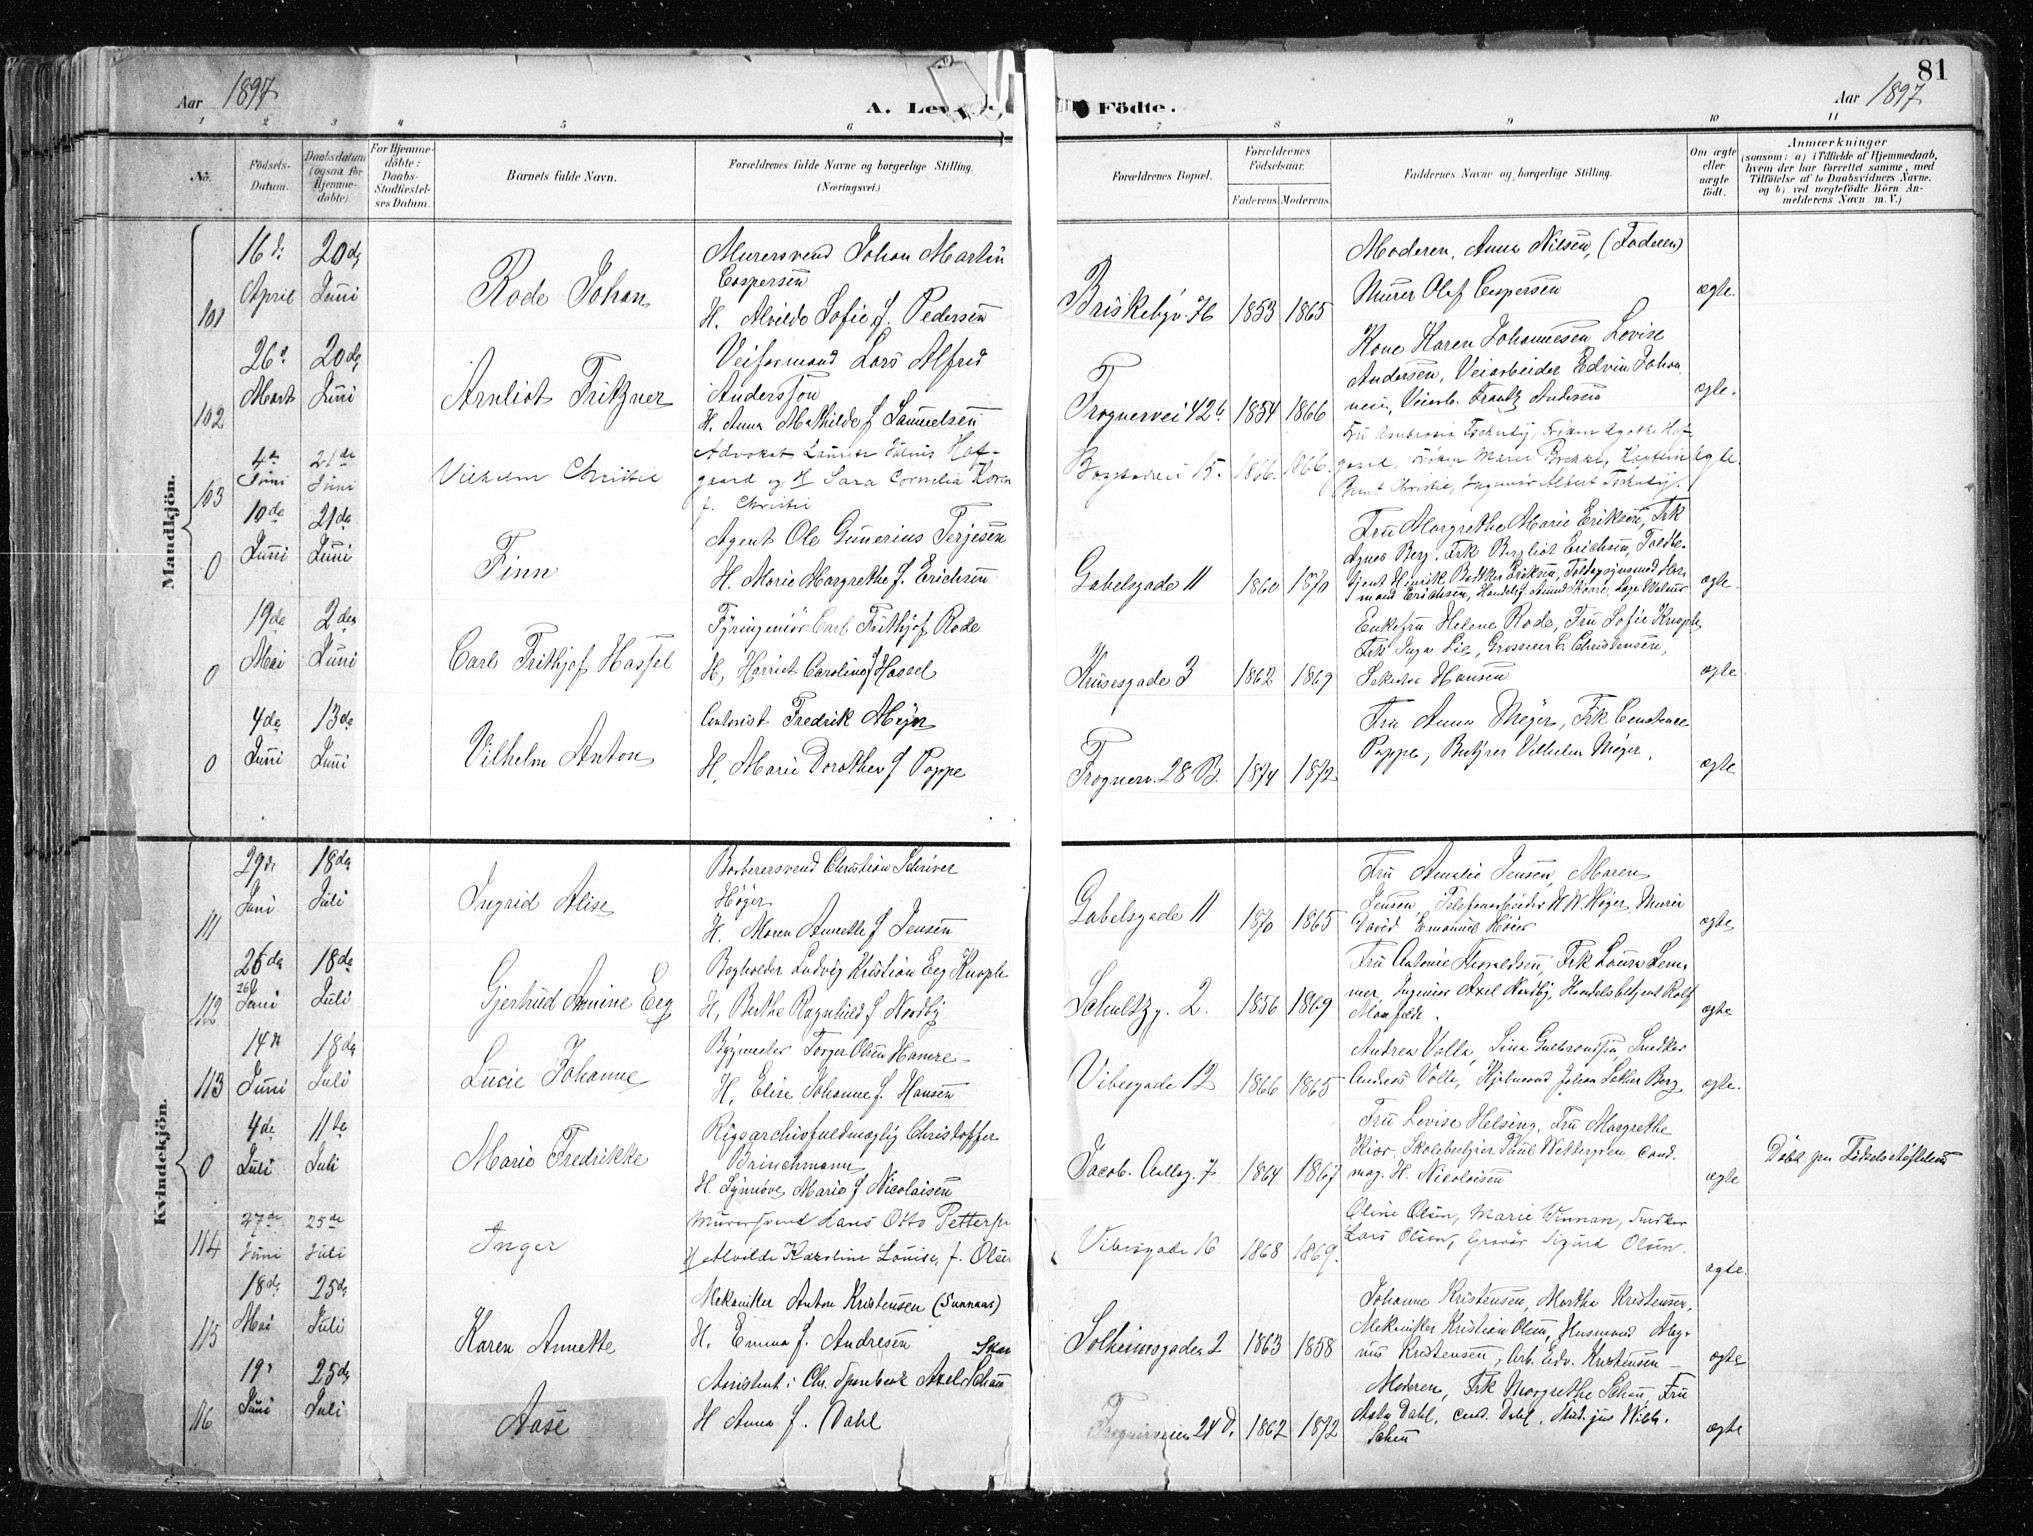 81
Aar 1897
A. Lev
Födte.
Aar 1897
1 2 3 4 5 6 7 8 9 10 11
No.
Födsels-Datum.
Daabsdatum (ogsaa for Hjemme-döbte)
For Hjemme-döbte: Daabs-Stadfæstel-ses Datum.
Barnets fulde Navn.
Forældrenes fulde Navne og borgerlige Stilling. (Næringsvei.)
Forældrenes Bopæl.
Forældrenes Födselsaar.
Faderens. Moderens.
Faddernes Navne og borgerlige Stilling.
Om ægte eller uægte födt.
Anmærkninger
(saasom: a) i Tilfælde af Hjemmedaab,
hvem der har forrettet samme, med
Tilföielse af to Daabsvidners Navne.
og b) ved uægtefödte Börn An-
melderens Navn m. V.)
Mandkjön.
101 16de April 20de Juni
Rode Johan
Murersvend Johan Martin
Caspersen
H. Alvilde Sofie f. Pedersen
Briskebyv. 76 1853 1865
Moderen, Anna Nilsen, (Faderen)
Murer Olaf Caspersen
ægte.
102 26de Marts 20de Juni
Arnliot Fritzner
Veiformand Lars Alfred
Andersson
H. Anna Mathilde f Samuelsen
Frognervei 42b 1854 1866
Kone Karen Johannesen, Lovise
Andersen, Veiarbeider Edvin Johan
nesen, Veiarb. Frantz Andersen
ægte.
103 4de Juni 21de Juni
Vilhelm Christie
Advokat Lauritz Julius Hof-
gaard og H Sara Cornelia Koren
f. Christie
Bogstadvei 15. 1866. 1866.
Fru Ambrosia Tschudy, Frøken Agathe Hof-
gaard, Frøken Marie Brekke, Kaptein
Bernt Christie, Ingeniør Albert Tschudy.
ægte.
0 10de Juni 21de Juni
Finn
Agent Ole Gunerius Terjesen
H. Marie Margrethe f. Erichsen
Gabelsgade 11 1860 1870
Fru Margrethe Marie Eriksen, Frk
Agnes Berg, Frk Bergliot Erichsen, Toldbe-
tjent Henrik Bøttker Eriksen,
ægte.
0 19de Mai 2den Juni
Carl Frithjof Hassel
Fyringeniør Carl Frithjof Rode
H, Harriet Caroline f Hassel
Krusesgade 3 1862 1869
Enkefru Helene Rode, Fru Sofie Knoph,
Frk Inga Lie, Grosserer C. Christensen,
Hansen
ægte.
0 4de Juni 13de Juni
Vilhelm Anton
Contorist Fredrik Meyer
H, Marie Dorothea f Poppe
Frognerv. 28 B. 1874 1872
Fru Anna Meyer, Frk Constance
Poppe, Vilhelm Meyer.
ægte
Kvindekjön.
111 29de Juni 18de Juli
Ingrid Alise
Barberersvend Christian Schriver
Høyer
H. Maren Annette f Jensen
Gabelsgade 11 1870 1865
Fru Amalie Jensen, Maren
Jensen, Telefonarbeider W. W. Høyer, Murer
David Emanuel Höier
ægte
112 26de Juni 18de Juli
Gjertrud Annine Eeg
Bogholder Ludvig Kristian Eeg Knoph
H, Berthe Ragnhild f Nordby
Schultzg. 2. 1856 1869
Fru Antonie Thoraldsen, Frk Laura Lem-
mer, Ingeniør Axel Nordby, Handelsbetjent Rolf
ægte
113 14de Juni 18de Juli
Lucie Johanne
Bygmester Torger Olsen Hamre
H, Elise Johanne f. Hansen
Vibesgade 12 1866 1865
Andrea Volla, Lina Gulbrandsen, Snedker
Andreas Volla, Johan Lother Berg
ægte.
0 4de Juli 11te Juli
Marie Fredrikke
Rigsarchivfuldmægtig Christoffer
Brinchmann
H. Synnøve Marie f Nicolaisen
Jacob. Aallsg. 7 1864 1867
Fru Lovise Helsing, Fru Margrethe
Kiær, Skolebestyrer Paul Wettergren, Cand.
mag. H. Nicolaisen
ægte
Döbt paa Fødselsstiftelsen
114 27de Juni 25de Juli
Inger
Murersvend Lars Otto Petterse
H Alvilde Karoline Louise, f. Olse
Vibesgade 16 1868 1869.
Oline Olsen, Marie Winnan, Snedker
Lars Olsen, Gravør Sigurd Olsen.
ægte.
115 18de Mai 25de Juli
Karen Annette
Mekaniker Anton Kristensen (Sunnaas)
H. Emma f. Andresen
Solheimsgaden 2 1863 1858
Johanne Kristensen, Martha Kristensen,
Mekaniker Kristian Olsen, Husmand Mag-
nus Kristensen, Arb. Edv. Kristensen
ægte
116 19de Juni 25de Juli
Aase
Assistent i Chr. Sparebank Axel Schou
H Anna f. Dahl
Frognerveien 24 D. 1862 1872
Moderen, Frk Margrethe Schou, Fru
Asta Dahl, Cand. Dahl, Stud. jur Wilh.
Schou
ægte